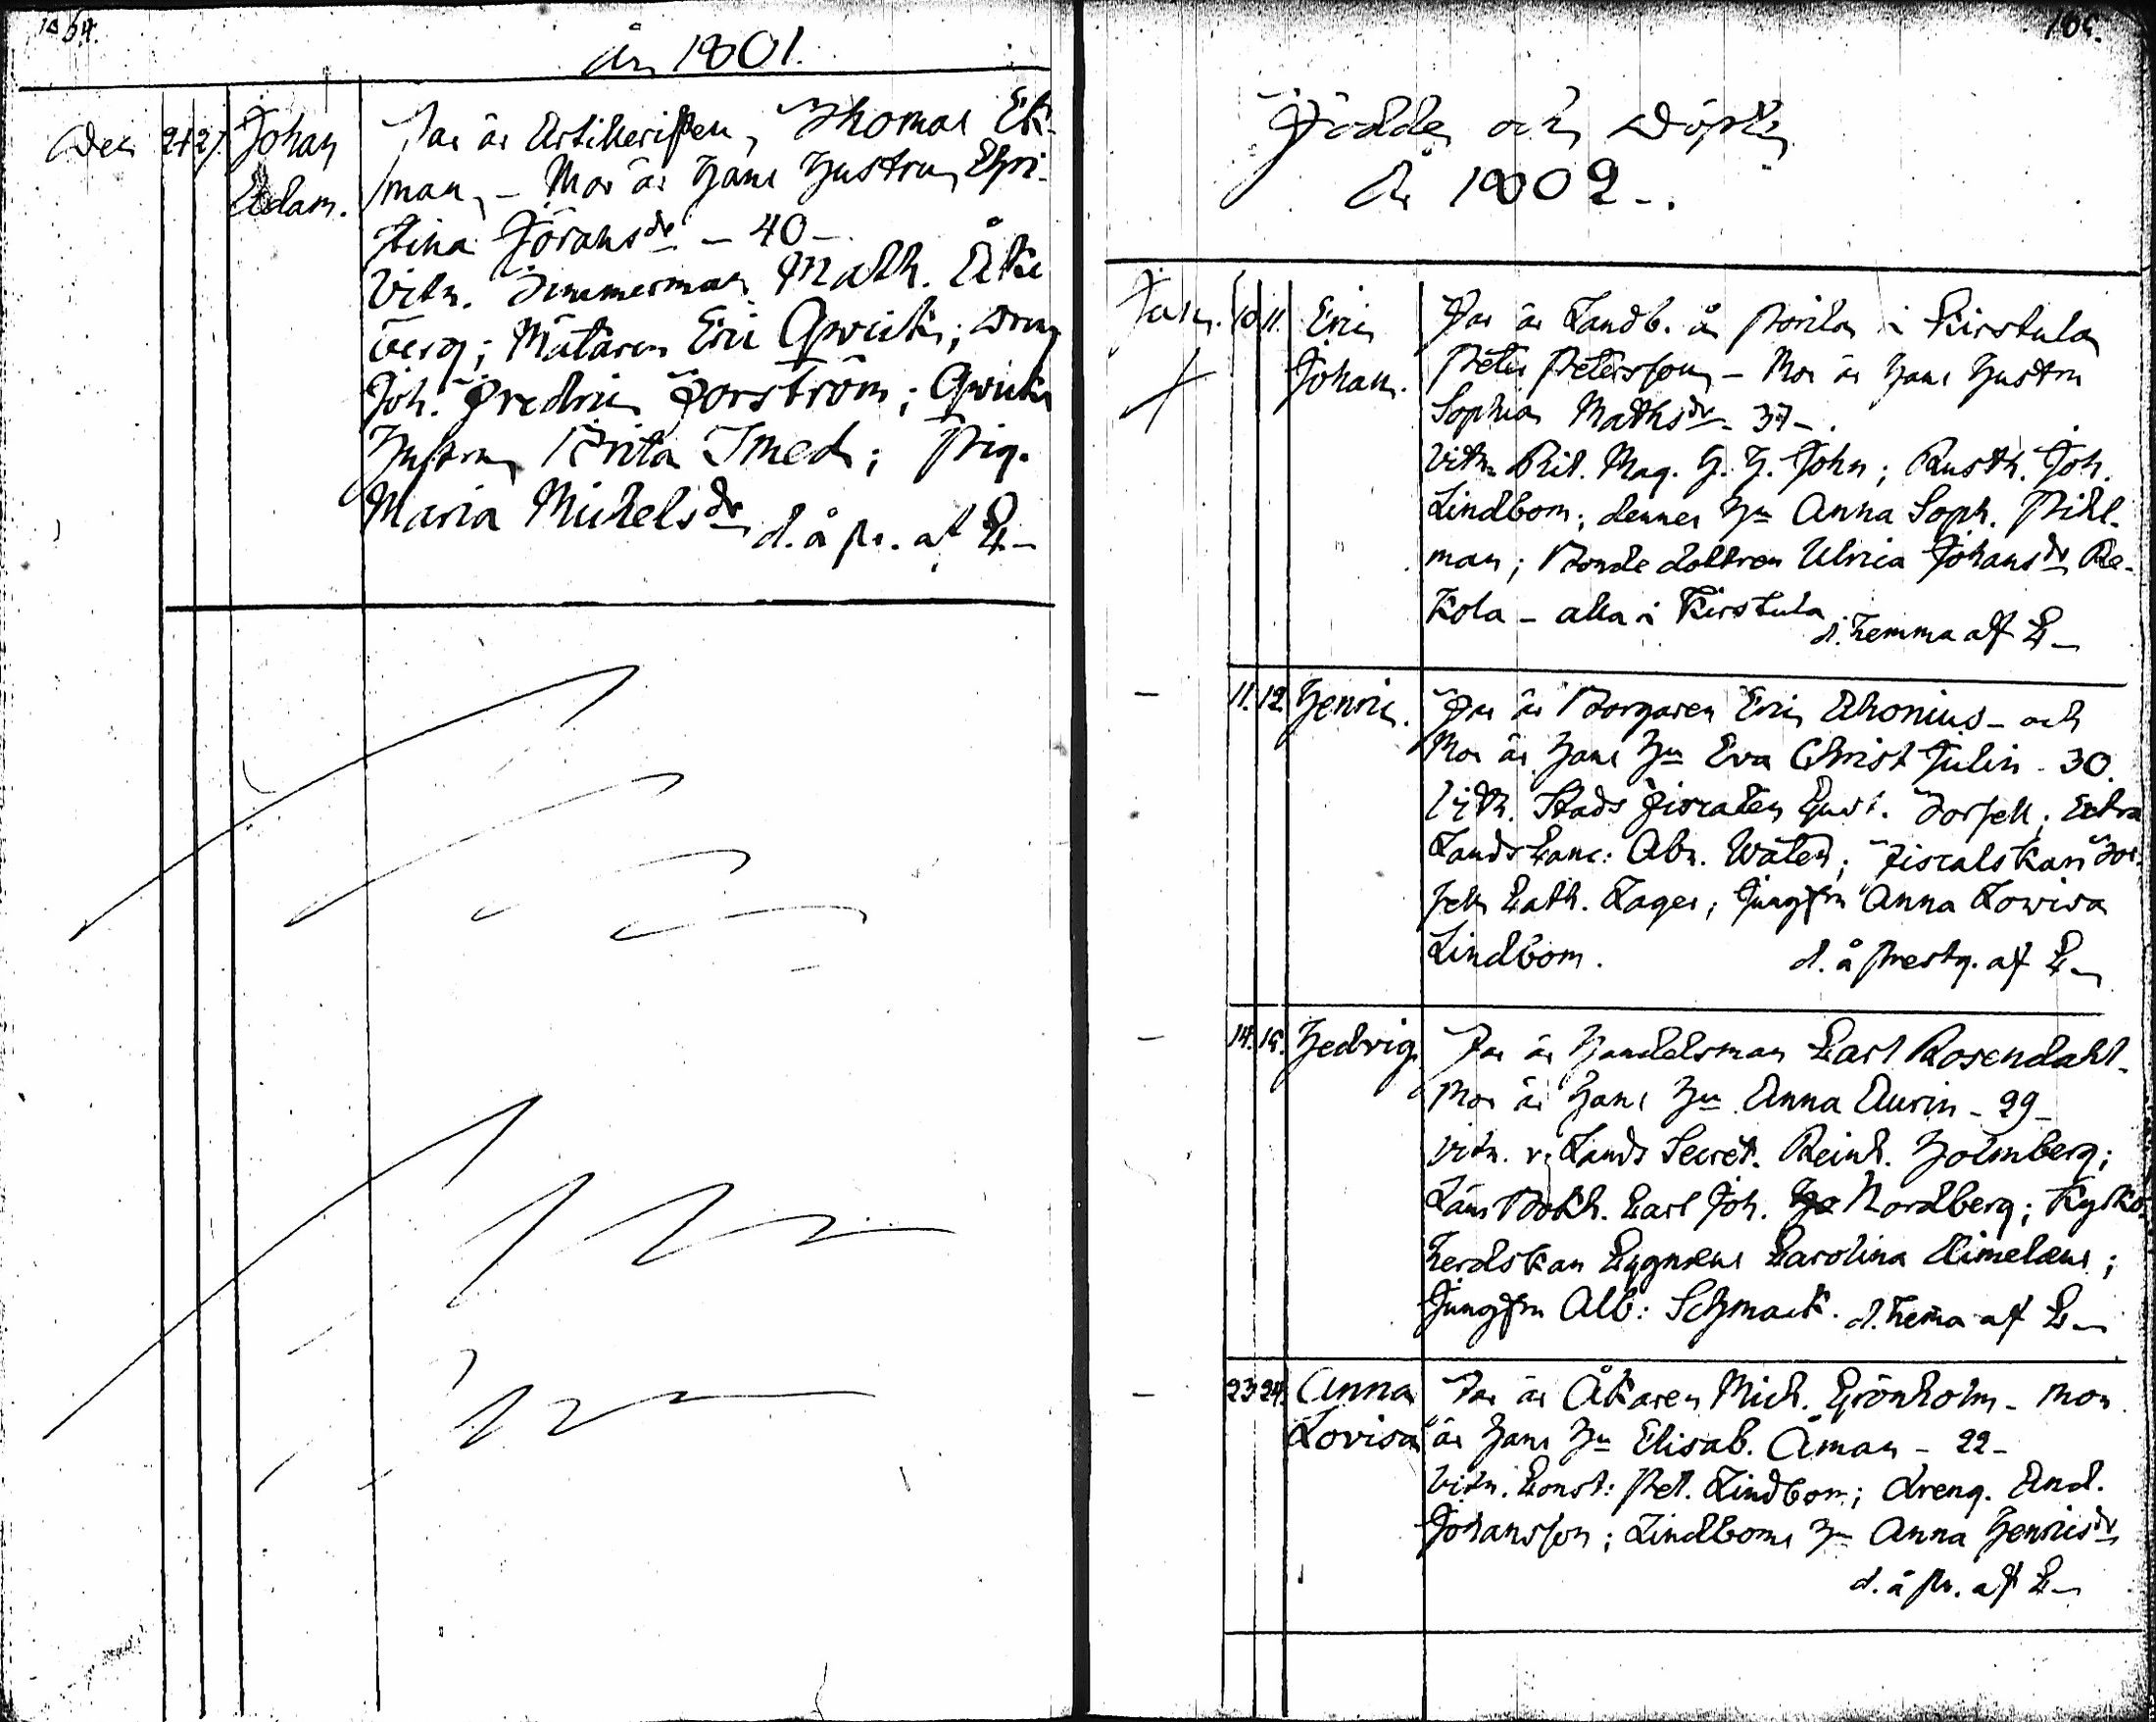 164.
år 1801.
Dec 24 27. Johan Adam.
Far är Artilleristen, Thomas Ek-
man, - Mor är hans hustru Chri-
stina Jöransdr - 40 -
Vitn. Timmerman Math. Åke-
berg; Mätaren Eric Qvick; Dreng
Joh. Fredric Forström; Qvicks
hustru Brita Smed; Pig.
Maria Michelsdr d. å pr. af C-
165.
Födde och Döpte
År 1802 -.
Jan. 10. 11. Eric Johan.
Far är Landb. å Borila i Kirstula
Peter Petersson - Mor är hans hustru
Sophia Mathsdr - 37 -.
Vitn. Mag. G. H. John; Rusth. Joh.
Lindbom; dennes hu Anna Soph. Pihl-
man; Bonde dottren Ulrica Johansdr Re-
kola - alla i Kirstula d. hemma af C-
11. 12. Henric.
Far är Borgaren Eric Ahonius - och
Mor är hans hu Eva Christ Julin - 30.
Vitn. Stads Fiscalen Gust. Forsell; Extra
Lands Canc: Abr. Watén; Fiscalskan For-
sell Cath. Lager; Jungfru Anna Lovisa
Lindbom. d. å prestg. af C-
14. 15. Hedvig.
Far är Handelsman Carl Rosendahl -
Mor är hans hu Anna Aurin - 29 -
Vitn. v. Lands Secret. Reinh. Holmberg;
Läns Bokh. Carl Joh. Nordberg; Kyrko-
herdskan Cygnæus Carolina Aimelæus;
Jungfru Alb: Schmack. d. hema af C-
23 24. Anna Lovisa
Far är Åkaren Mich. Grönholm - Mor
är hans hu Elisab. Åman - 22 -
Vitn. Const: Pet. Lindbom; dreng. And.
Johansson; Lindboms hu Anna Henricsdr
d. å pr. af C-